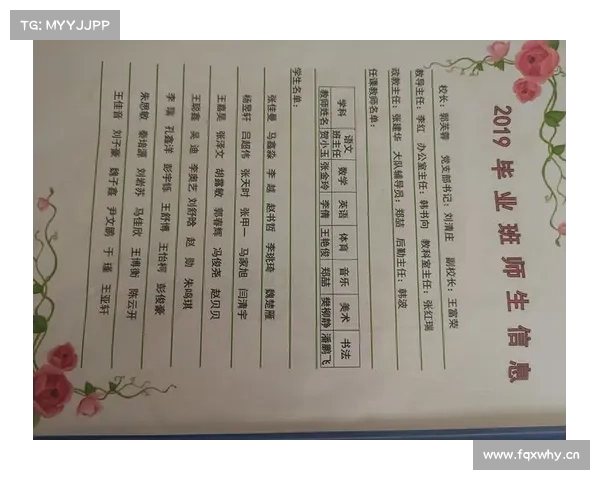 TG: MYYJJPP
2019 毕业班师生信息
校长：郭芙蓉 党支部书记：刘清庄 副校长：王富荣
教导主任：李红 办公室主任：韩书向 教科室主任：张红瑞
政教主任：张建华 大队辅导员：郑喆 后勤主任：韩波
任课教师名单：
学科 语文 数学 英语 体育 音乐 美术 书法
班主任
教师姓名 贺小玉 张金玲 李倩 王艳俊 郑喆 樊柳静 潘鹏飞
学生名单：
张佳曼 马鑫淼 李越 赵书哲 李珧琦 魏楚雁
杨昱轩 吕超伟 张天时 张甲一 马家旭 闫清宇
王嘉昊 张泽文 胡露敏 郭春辉 冯俊尧 赵贝贝
王聪鑫 吴迪 李奥艺 刘舒晗 赵勋 朱鸣琪
李瑞 孔鑫洋 彭宇栎 王舒博 王怡柯 彭俊豪
朱思敏 秦培源 刘岩苏 马佳欣 王博衡 陈云开
王佳音 刘子豪 魏子鑫 尹文鹏 于瑾 王亚轩
www.fqxwhy.cn